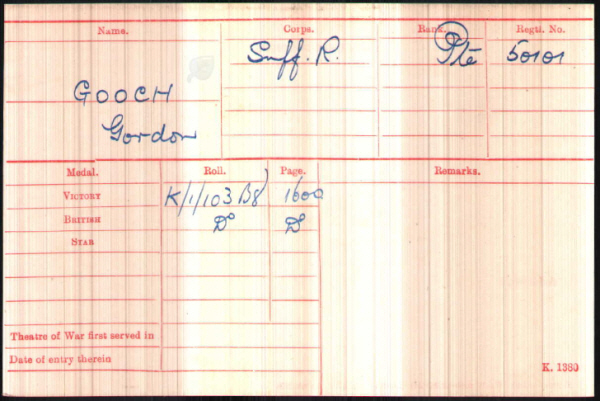 Name. Corps. Rank. Regtl. No.
Suff. R. Pte 50101
GOOCH
Gordon
Medal. Roll. Page. Remarks.
VICTORY K/1/103 B8 1600
BRITISH Do Do
STAR
Theatre of War first served in
Date of entry therein
K. 1380